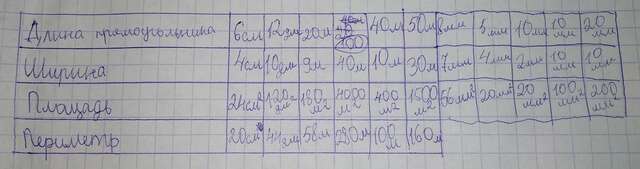 Длина прямоугольника 6см 12дм 20м 100 40м 50м 8мм 5мм 10мм 10мм 20мм
Ширина 4см 10дм 9м 40м 10м 30м 7мм 4мм 2мм 10мм 10мм
Площадь 24см² 120дм² 180м² 4000м² 400м² 1500м² 56мм² 20мм² 20мм² 100мм² 200мм²
Периметр 20см 44дм 58м 280м 100м 160м